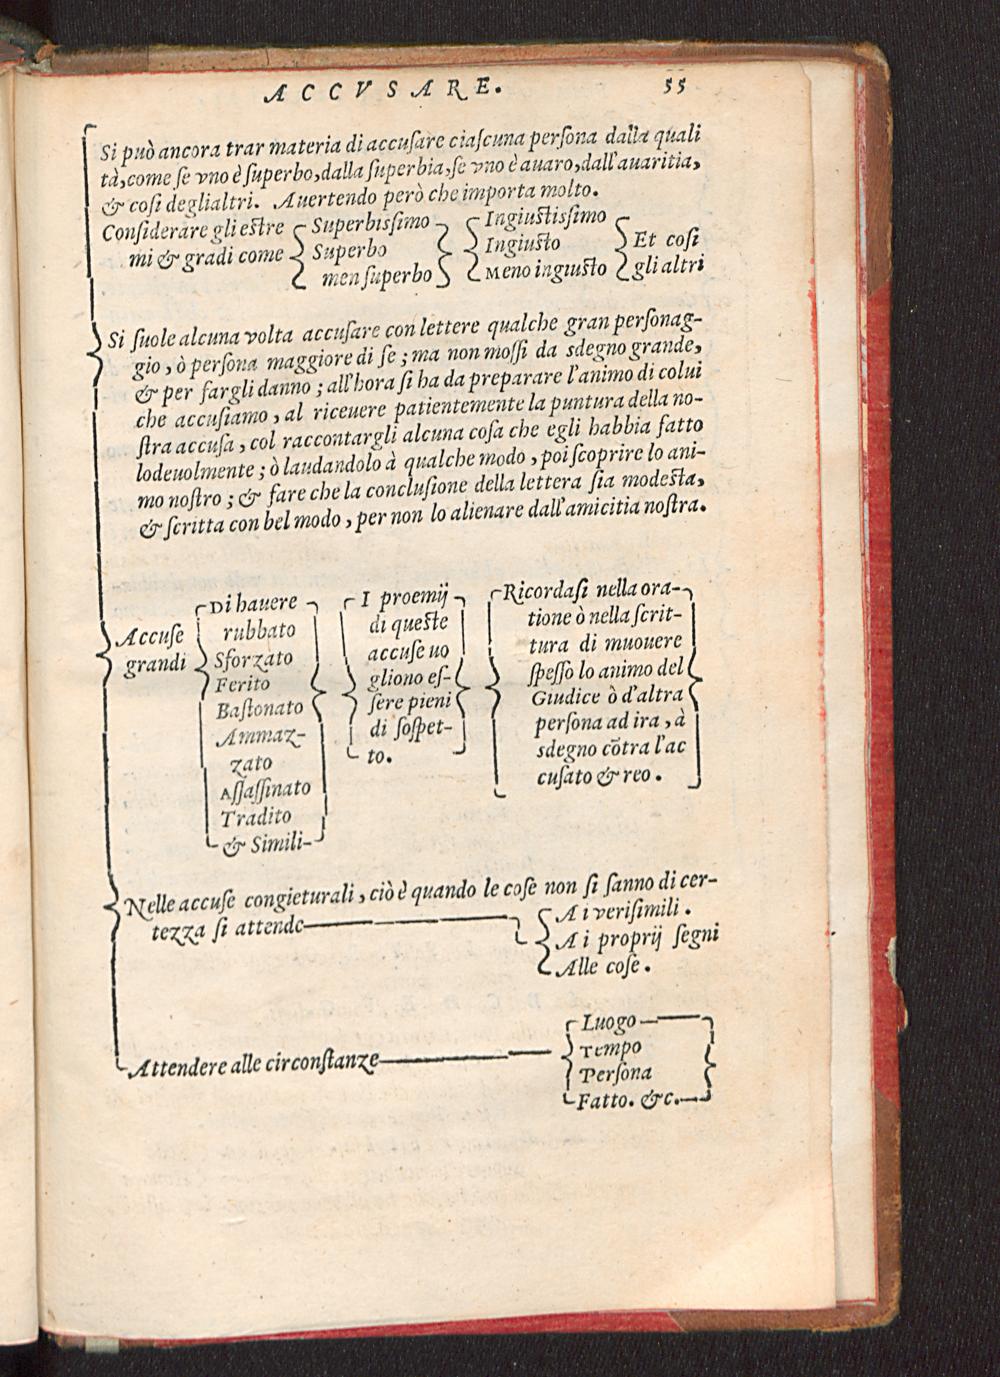 ACCVSARE. 55
Si può ancora trar materia di accuſare ciaſcuna perſona dalla quali
tà, come ſe vno è ſuperbo, dalla ſuperbia, ſe vno è auaro, dall'auaritia,
& coſi deglialtri. Auertendo però che importa molto.
Conſiderare gli eſtre
mi & gradi come
Superbisſimo
Superbo
men ſuperbo
Ingiuſtisſimo
Ingiuſto
Meno ingiuſto
Et coſi
gli altri
Si ſuole alcuna volta accuſare con lettere qualche gran perſonag-
gio, ò perſona maggiore di ſe; ma non moſſi da sdegno grande,
& per fargli danno; all'hora ſi ha da preparare l'animo di colui
che accuſiamo, al riceuere patientemente la puntura della no-
ſtra accuſa, col raccontargli alcuna coſa che egli habbia fatto
lodeuolmente; ò laudandolo à qualche modo, poi ſcoprire lo ani-
mo noſtro; & fare che la concluſione della lettera ſia modeſta,
& ſcritta con bel modo, per non lo alienare dall'amicitia noſtra.
Accuſe
grandi
Di hauere
rubbato
Sforzato
Ferito
Baſtonato
Ammaz-
zato
Aſſaſſinato
Tradito
& Simili-
I proemij
di queſte
accuſe uo
gliono eſ-
ſere pieni
di ſoſpet-
to.
Ricordaſi nella ora-
tione ò nella ſcrit-
tura di muouere
ſpeſſo lo animo del
Giudice ò d'altra
perſona ad ira, à
sdegno cõtra l'ac
cuſato & reo.
Nelle accuſe congieturali, ciò è quando le coſe non ſi ſanno di cer-
tezza ſi attende
A i veriſimili.
A i proprij ſegni
Alle coſe.
Attendere alle circonſtanze
Luogo
Tempo
Perſona
Fatto. &c.